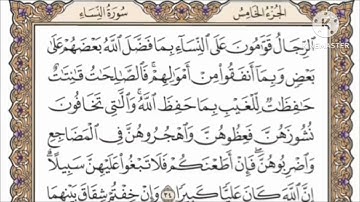 الجزء الخامس
سورة النساء
الرِّجَالُ قَوَّامُونَ عَلَى النِّسَاءِ بِمَا فَضَّلَ اللَّهُ بَعْضَهُمْ عَلَىٰ
بَعْضٍ وَبِمَا أَنفَقُوا مِنْ أَمْوَالِهِمْ ۚ فَالصَّالِحَاتُ قَانِتَاتٌ
حَافِظَاتٌ لِّلْغَيْبِ بِمَا حَفِظَ اللَّهُ ۚ وَاللَّاتِي تَخَافُونَ
نُشُوزَهُنَّ فَعِظُوهُنَّ وَاهْجُرُوهُنَّ فِي الْمَضَاجِعِ
وَاضْرِبُوهُنَّ ۖ فَإِنْ أَطَعْنَكُمْ فَلَا تَبْغُوا عَلَيْهِنَّ سَبِيلًا ۗ
إِنَّ اللَّهَ كَانَ عَلِيًّا كَبِيرًا ٣٤ وَإِنْ خِفْتُمْ شِقَاقَ بَيْنِهِمَا